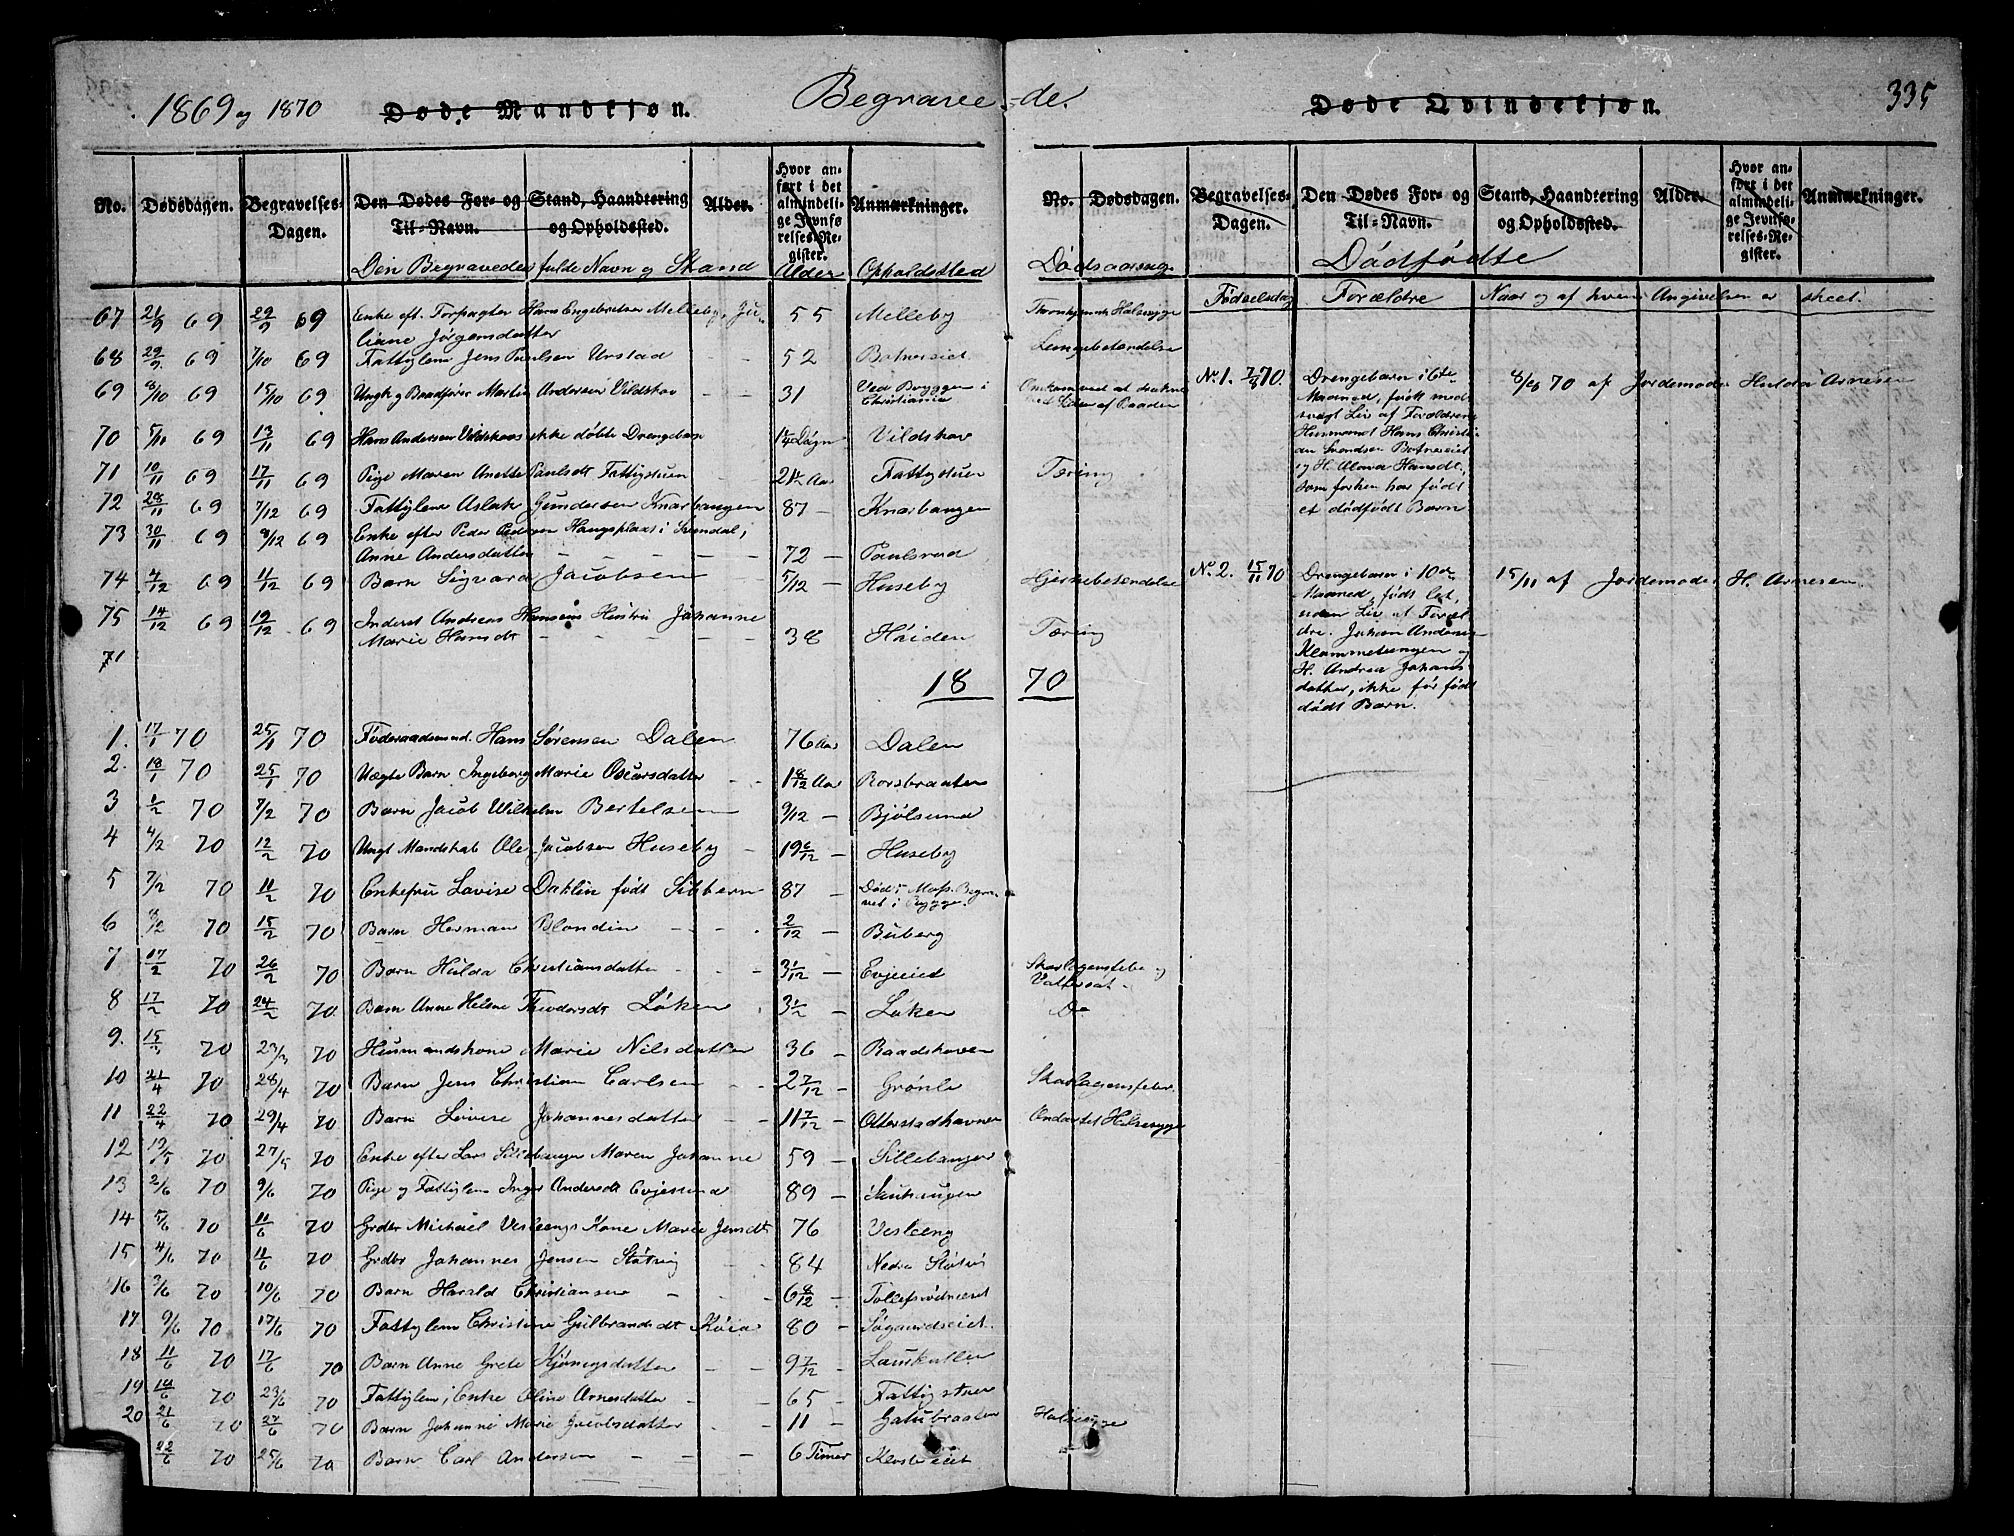 1869 og 1870 Døde Mandkjøn. Begravede. Døde Qvindekjøn. 335
No. Dødsdagen. Begravelses-Dagen. Den Dødes For- og Til-Navn. Stand, Haandtering og Opholdssted. Alder. Hvor anført i det almindelige Jevnførelses-Register. Anmærkninger.
No. Dødsdagen. Begravelses-Dagen. Den Dødes For- og Til-Navn. Stand, Haandtering og Opholdssted. Alder. Hvor anført i det almindelige Jevnførelses-Register. Anmærkninger.
Den Begravedes fulde Navn og Stand Alder Opholdssted Dødsaarsag. Dødfødte
Fødselsdag Forældre Naar og af hvem Angivelsen er skeet.
67 21/9 69 29/9 69 Enke eft. Forpagter Hans Engebretsen Melleby, Ju-
liane Jørgensdatter 55 Melleby Halssyge
68 29/9 69 7/10 69 Fattiglem Jens Paulsen Urstad - - 52 Botnereiet Lungebetændelse
69 8/10 69 15/10 69 Ungk. og Baadfører Martin Andersen Vildskov 31 Ved Bryggen i
Christiania Omkommet at drukne
ved af Baaden
70 5/11 69 13/11 69 Hans Andersen Vildskovs ikke døbte Drengebarn 1 1/4 Døgn Vildskov
71 10/11 69 17/11 69 Pige Maren Anette Paulsdt Fattigstuen 21 Aar Fattigstuen Tæring
72 28/11 69 7/12 69 Fattiglem Aslak Gundersen Knarbangen 87 - Knarbangen
73 30/11 69 8/12 69 Enke efter Peder Pedersen Haugsplads i Svindal,
Anne Andersdatter - - - - 72 - Paulsrud
74 4/12 69 11/12 69 Barn Sigvard Jacobsen - 5/12 - Huseby Hjernebetændelse
75 14/12 69 19/12 69 Inderst Andreas Hansens Hustru Johanne
Marie Hansdt - - - - - 38 Høiden Tæring
71
18 70
1. 17/1 70 25/1 70 Føderaadsmnd. Hans Sørensen Dalen 76 Aar Dalen
2. 18/1 70 25/1 70 Uægte Barn Ingeborg Marie Oscarsdatter - - 1 8/12 Aar Rorsbraaten
3 1/2 70 7/2 70 Barn Jacob Wilhelm Bertelsen 9/12 - Bjølsund
4 4/2 70 12/2 70 Ungt Mandskab Ole Jacobsen Huseby - 19 6/12 - Huseby
5 7/2 70 11/2 70 Enkefru Lovise Dahlin født Sibbern 87 - Død i Moss. Begra-
vet i Rygge.
6 9/2 70 15/2 70 Barn Herman Blondin - - - 2/12 - Buberg
7 17/2 70 26/2 70 Barn Hulda Christiansdatter - - 3 1/12 - Evjeeiet Skarlagensfeber og
Vattersot -
8 17/2 70 24/2 70 Barn Anne Helene Theodorsdt Løken 3 1/2 - Løken Do
9. 15/3 70 23/3 70 Husmandskone Marie Nilsdatter 36 - Raadshaven
10 21/4 70 28/4 70 Barn Jens Christian Carlsen - - 2 7/12 - Grønli Skarlagensfeber
11 22/4 70 29/4 70 Barn Lovise Johannesdatter - 11 7/12 - Otterstadhavnen Ondartet Halssyge
12 19/5 70 27/5 70 Enke efter Lars Sillebanger Maren Johanne 59 - Sillebangen
13 2/6 70 9/6 70 Pige og Fattiglem Inger Andersdt Evjesund 89 - Sauhaugen
14 5/6 70 11/6 70 Grdbr Michael Vesleengs Kone Marie Jensdt 76 Vesleeng
15 4/6 70 11/6 70 Grdbr Johannes Jensen Støtvig 84 Nedre Støtvig
16 3/6 70 10/6 70 Barn Harald Christiansen - - 6 8/12 - Tollefsrødneset
17 9/6 70 17/6 70 Fattiglem Christine Gulbrandsdt 80 - Søgaardseiet.
18 11/6 70 17/6 70 Barn Anne Grete Kjønigsdatter - - 9 7/12 - Lauskallen
19 14/6 70 23/6 70 Fattiglem, Enke Oline Arnesdatter - - 65 - Fattigstuen
20 21/6 70 27/6 70 Barn Johanne Marie Jacobsdatter - 11 - Galubraaten Halssyge
22/6 70 25/6 70 Barn Carl Andersen - - - 6 Timer
No. 1. 7/8 70. Drengebarn i 6te
Maaned, født med
svagt Liv af Forældrene
Husmand Hans Christi-
an Svendsen Botnereiet
og H. Hansdt,
som forhen har født
et dødfødt Barn
8/8 70 af Jordemoder Hulda Arnesen
No. 2. 15/11 70 Drengebarn i 10de
Maaned, født let,
uden Liv af Foræl-
dre. Johan Anders.
Klommetsengen og
H. Andrea Johans-
datter, ikke før født
dødt Barn.
15/11 af Jordemoder H. Arnesen.